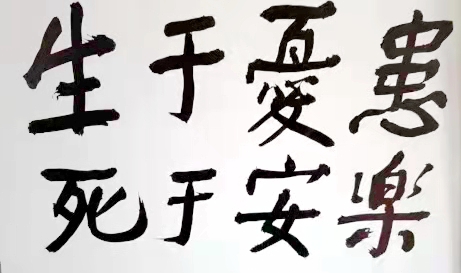 生于憂患
死于安楽